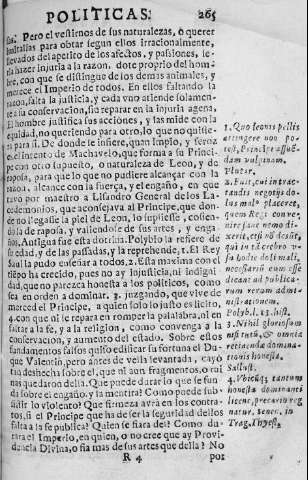 POLITICAS. 265
sus. Pero el vestirnos de sus naturalezas, ò querer
imitallas para obrar segun ellos irracionalmente,
llevados del apetito de los afectos, y passiones, se-
ria hazer injuria a la razon, dote proprio del hom-
bre, con que se distingue de los demas animales, y
merece el Imperio de todos. En ellos faltando la
razon, falta la justicia, y cada vno atiende solamen-
te a su conservacion, sin reparar en la injuria agena.
El hombre justifica sus acciones, y las mide con la
equidad, no queriendo para otro, lo que no quisie-
ra para si. De donde se infiere, quan impio, y feroz
es el intento de Machavelo, que forma a su Princi-
pe con otro supuesto, o naturaleza de Leon, y de
raposa, para que lo que no pudiere alcançar con la
razon, alcance con la fuerça, y el engaño, en que
tuvo por maestro a Lisandro General de los La-
cedemonios, que aconsejava al Principe, que don-
de no llegasse la piel de Leon, lo supliesse, cosien-
do la de raposa, y valiendose de sus artes, y enga-
ños. Antigua fue esta doctrina. Polybio la refiere de
su edad, y de las passadas, y la reprehende. El Rey
Saul la pudo enseñar a todos. Esta maxima con el
tiēpo ha crecido, pues no ay injusticia, ni indigni-
dad, que no parezca honesta a los politicos, como
sea en orden a dominar. 3. juzgando, que vive de
merced el Principe, a quien solo lo justo es licito,
4. con que ni se repara en romper la palabra, ni en
faltar a la fe, y a la religion, como convenga a la
conservacion, y aumento del estado. Sobre estos
fundamentos falsos quiso edificar su fortuna el Du-
que Valentin, pero antes de vella levantada, cayò
tan deshecha sobre el, que ni aun fragmentos, o rui
nas quedaron della. Que puede durar lo que se fun-
da sobre el engaño, y la mentira? Como puede sub-
sistir lo violento? Que firmeza avrà en los contra-
tos, si el Principe que ha de ser la seguridad dellos
falta a la fe publica? Quien se fiarà del? Como du-
rarà el Imperio, en quien, o no cree que ay Provi-
dencia Divina, o fia mas de sus artes que della? No
R 4 por
1. Quo leonis pellis
attingere non po-
test, Principi assuē-
dam vulpinam.
Plutar.
2. Fuit, cui in trac-
tandis negotijs do-
lus mal⁹ placeret,
quem Regi conve-
nire sane nemo di-
xerit, etsi nō desūt,
qui in tā crebro v-
su hodie doli mali,
necessariū eum esse
dicant ad publica-
rum rerum admi-
nistrationem.
Polyb. l. 13. hist.
3. Nihil gloriosum
nisi tutū, & omnia
retinendæ domina-
tionis honesta.
Sallust.
4. Vbicūq; tantum
honesta dominanti
licent, precariò reg
natur. Senec. in
Trag. Thyest.